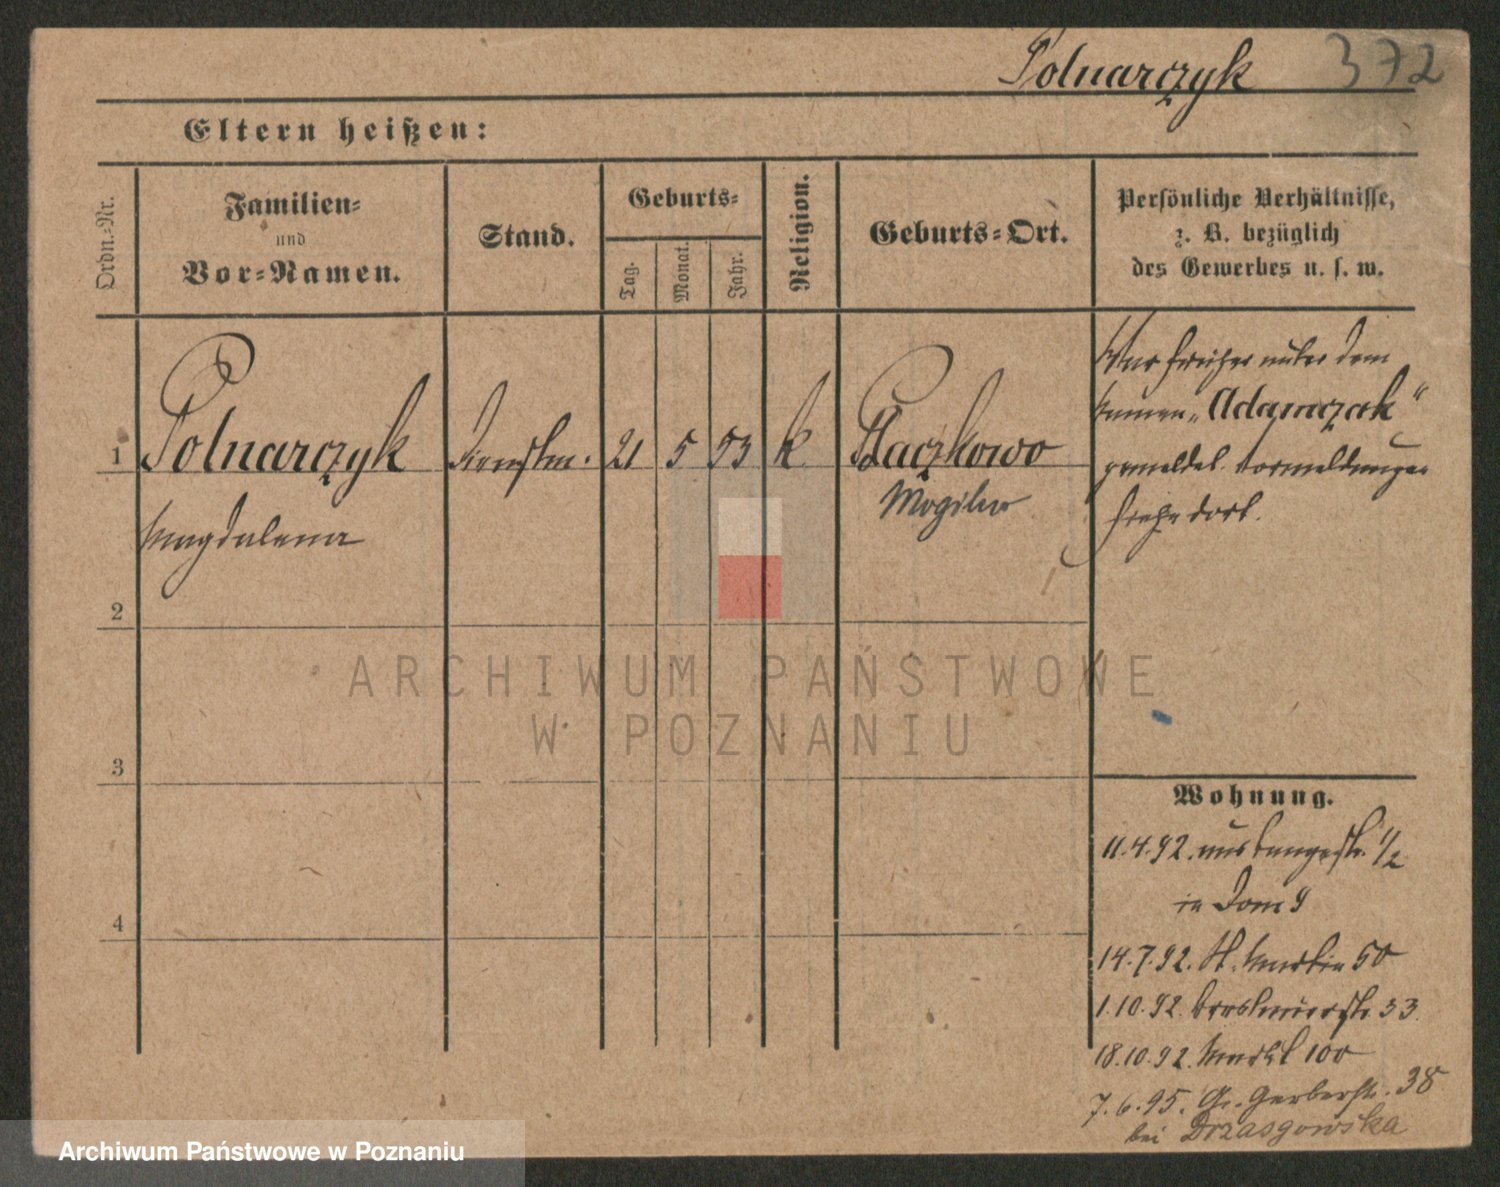 Polnarczyk 372
Eltern heißen:
Ordn.-Nr.
Familien-
und
Vor-Namen.
Stand.
Geburts-
Tag.
Monat.
Jahr.
Religion.
Geburts-Ort.
Persönliche Verhältnisse,
z. B. bezüglich
des Gewerbes u. s. w.
1 Polnarczyk 21 5 53 k. Placzkowo
Magdalena
Mogilno
War früher unter dem
Namen „Adamczak“
gemeldet. Vormeldungen
siehe dort.
2
3
4
Wohnung.
11.4.92. aus Langestr. 1/2
in Dom 9
14.7.92. St. Martin 50
1.10.92. 33
18.10.92. Markt 100
7.6.95. Gr. Gerberstr. 38
bei Drzasgowska
ARCHIWUM PAŃSTWOWE
W POZNANIU
Archiwum Państwowe w Poznaniu